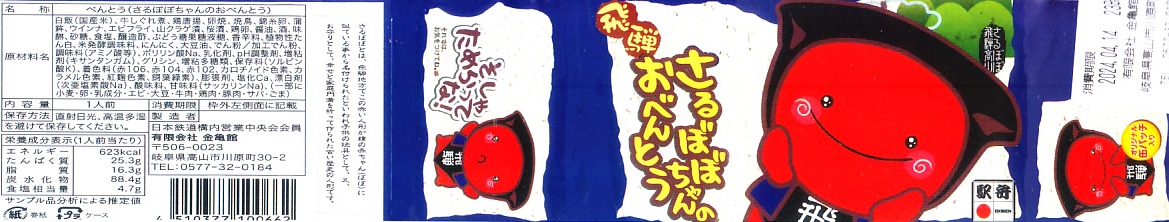 名 称 べんとう(さるぼぼちゃんのおべんとう)
原材料名
白飯(国産米)、牛しぐれ煮、鶏唐揚、卵焼、焼鳥、錦糸卵、蒲
鉾、ウインナ、エビフライ、山クラゲ漬、桜漬、鶏卵、醤油、酒、味
醂、砂糖、食塩、醸造酢、ぶどう糖果糖液糖、香辛料、植物性た
ん白、米発酵調味料、にんにく、大豆油、でん粉/加工でん粉、
調味料(アミノ酸等)、ポリリン酸Na、乳化剤、pH調整剤、増粘
剤(キサンタンガム)、グリシン、増粘多糖類、保存料(ソルビン
酸K)、着色料(赤106、赤104、赤102、カロチノイド色素、カ
ラメル色素、紅麹色素、銅葉緑素)、膨張剤、塩化Ca、漂白剤
(次亜塩素酸Na)、酸味料、甘味料(サッカリンNa)、(一部に
小麦・卵・乳成分・エビ・大豆・牛肉・鶏肉・豚肉・サバ・ごま)
内 容 量 1人前 消費期限 枠外左側面に記載
保存方法 直射日光、高温多湿
を避けて保存してください。
製 造 者
日本鉄道構内営業中央会会員
有限会社 金亀館
〒506-0023
岐阜県高山市川原町30-2
TEL:0577-32-0184
栄養成分表示(1人前当り)
エネルギー 623kcal
たんぱく質 25.3g
脂 質 16.3g
炭 水 化 物 88.4g
食塩相当量 4.7g
サンプル品分析による推定値
紙 巻紙 プラ ケース
4 510377 100662
さるぼぼとは、飛騨地方でこの赤い人形が猿の赤ちゃん(ぼぼ)に
似ている事から名付けられたといわれ子供の玩具として、又、
お守りとして、幸せと家庭円満を祈って作られた古い歴史の人形です。
きしゃって
ためらってな!
飛騨
飛騨
さるぼぼちゃんの
おべんとう
飛
さるぼぼ
飛騨高山
駅弁
EKIBEN
消費期限
2024.04.14
有限会社 金亀館
オリジナル
缶バッチ
入り
飛騨